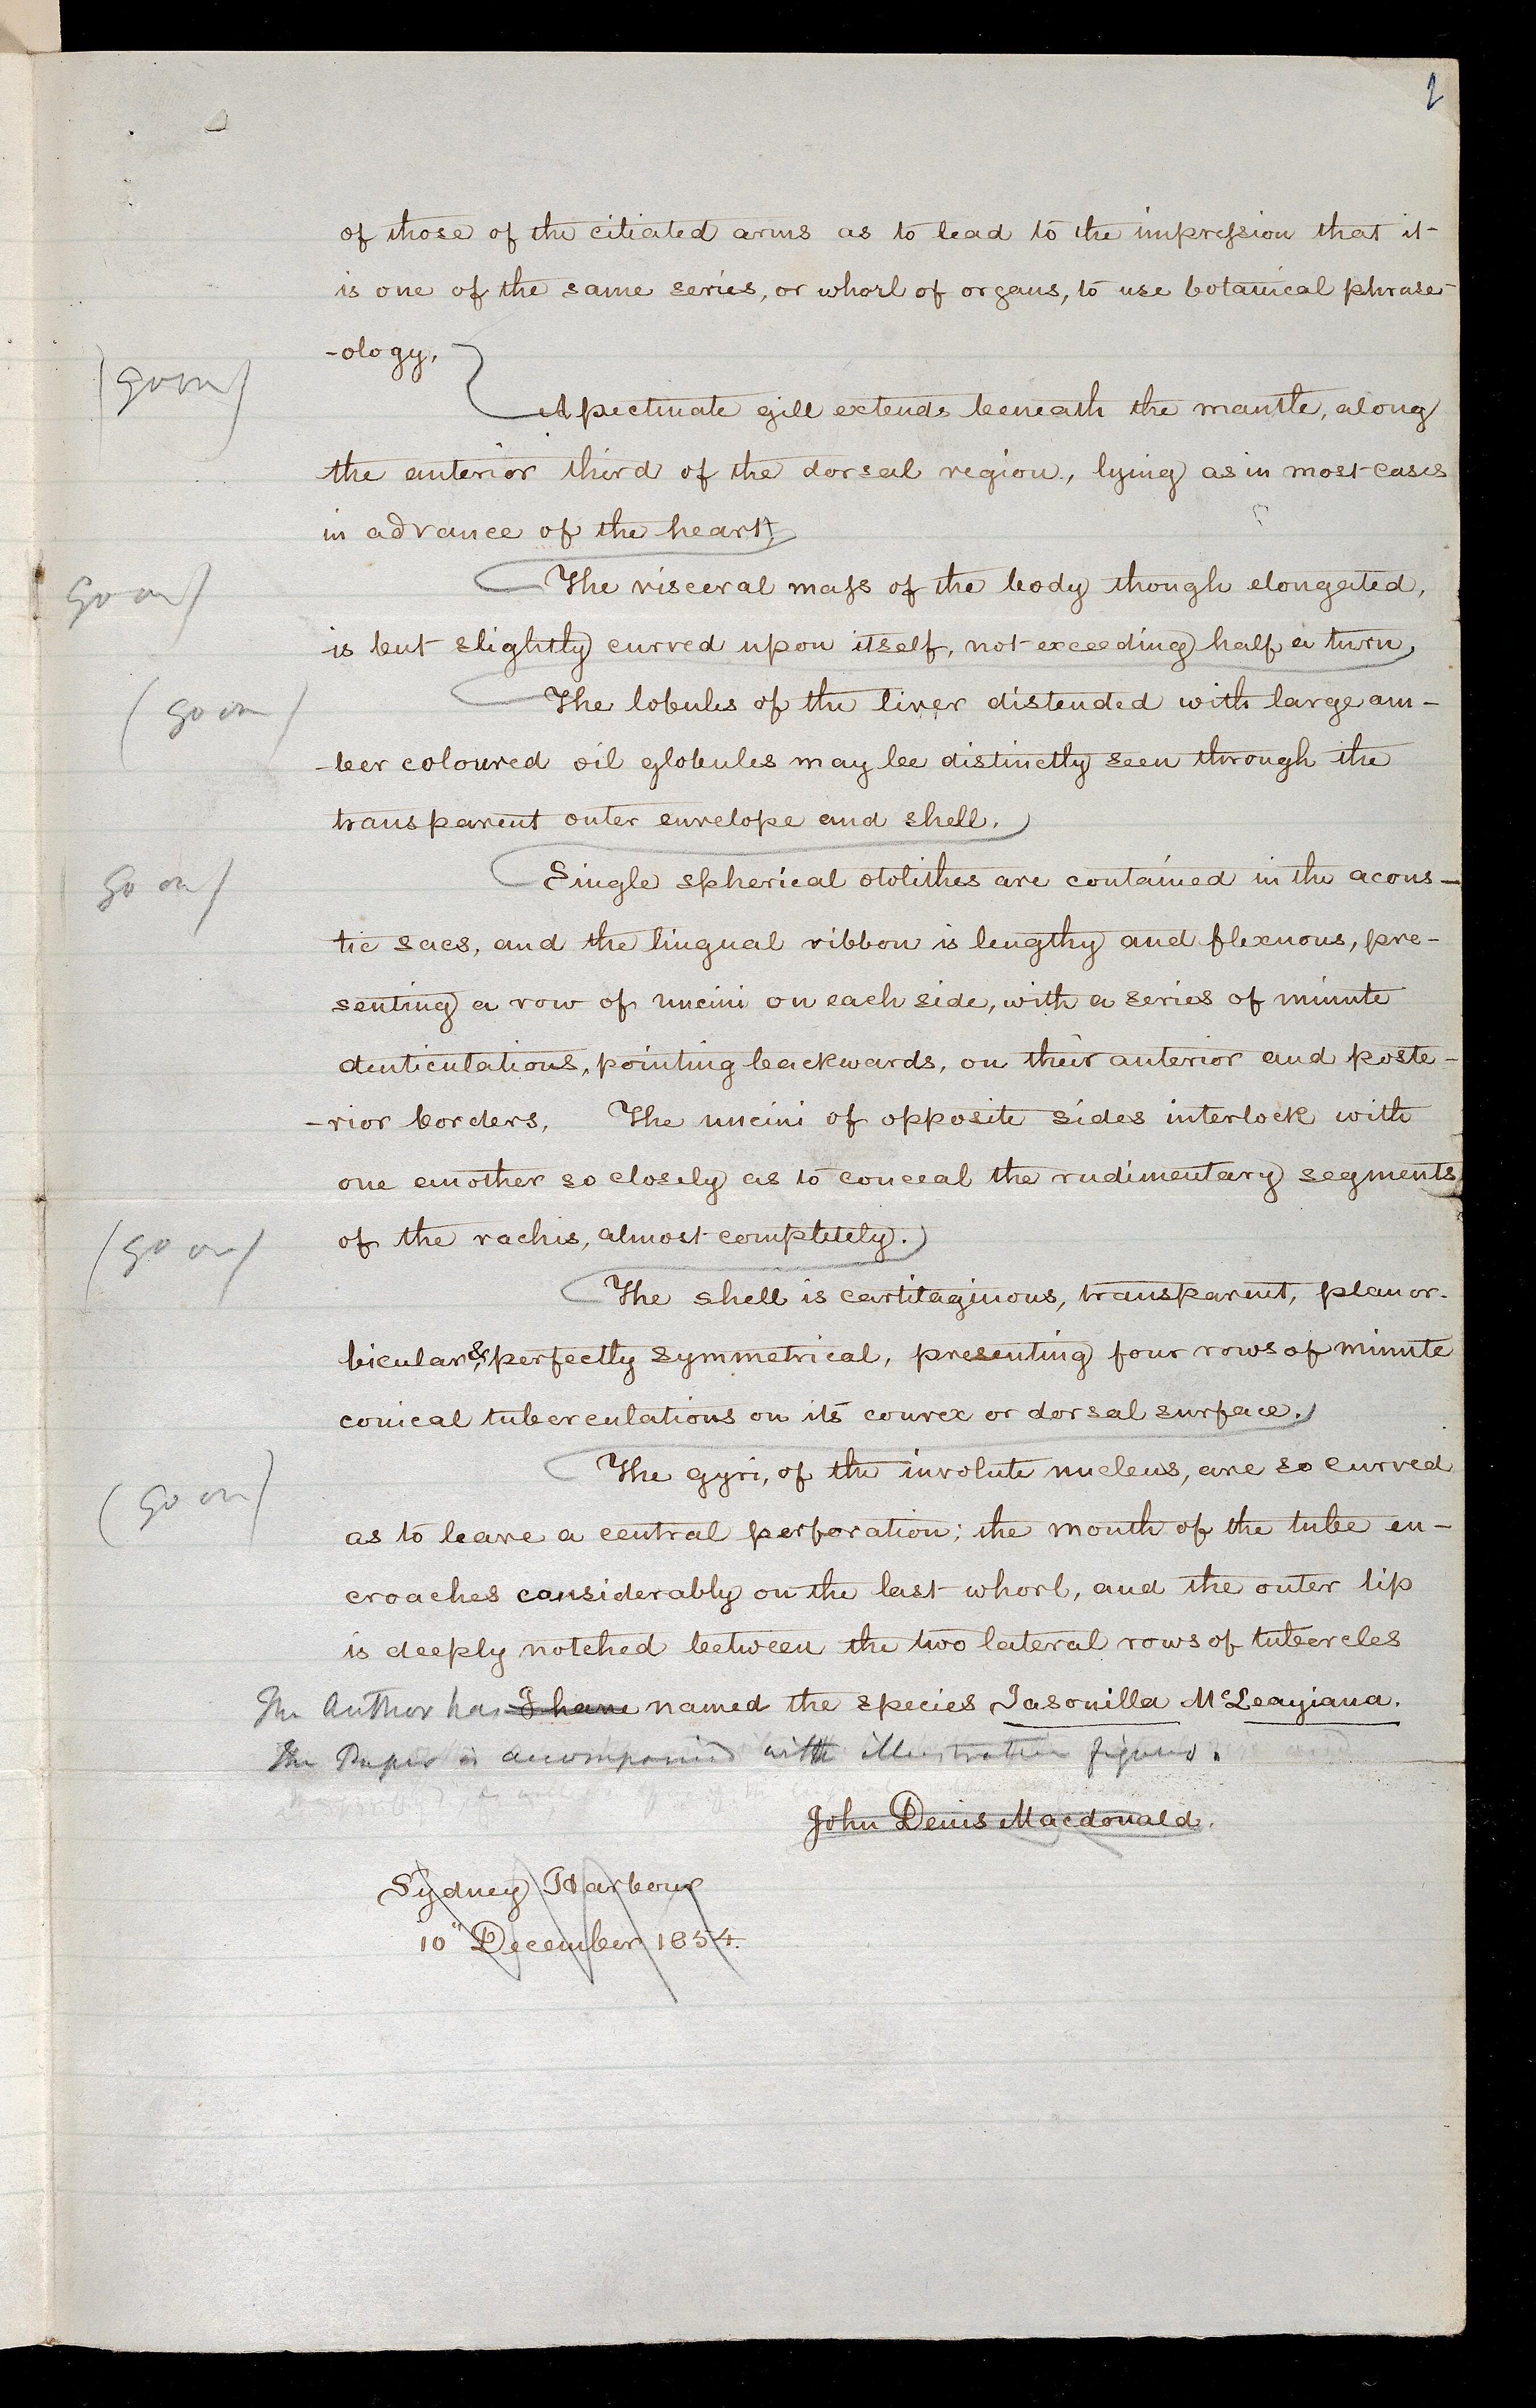 2
of those of the ciliated arms as to lead to the impression that it
is one of the same series, or whorl of organs, to use botanical phrase-
-ology,
(go on)
A pectinate gill extends beneath the mantle, along
the anterior third of the dorsal region, lying as in most cases
in advance of the heart.
go on)
The visceral mass of the body though elongated,
is but slightly curved upon itself, not exceeding half a turn,
(go on)
The lobules of the liver distended with large am-
-ber coloured oil globules may be distinctly seen through the
transparent outer envelope and shell.)
go on)
Single spherical otolithes are contained in the acous-
tic sacs, and the lingual ribbon is lengthy and flexuous, pre-
senting a row of uncini on each side, with a series of minute
denticulations, pointing backwards, on their anterior and poste-
-rior borders, The uncini of opposite sides interlock with
one another so closely as to conceal the rudimentary segments
of the rachis, almost completely.)
(go on)
The shell is cartilaginous, transparent, planor-
bicular, & perfectly symmetrical, presenting four rows of minute
conical tuberculations on its convex or dorsal surface.)
(go on)
The gyri, of the involute nucleus, are so curved
as to leave a central perforation; the mouth of the tube en-
croaches considerably on the last whorl, and the outer lip
is deeply notched between the two lateral rows of tubercles
The Author has I have named the species Jasonilla McLeayiana.
The Paper is accompanied with illustrative figures.
John Denis Macdonald.
Sydney Harbour
10" December 1854.